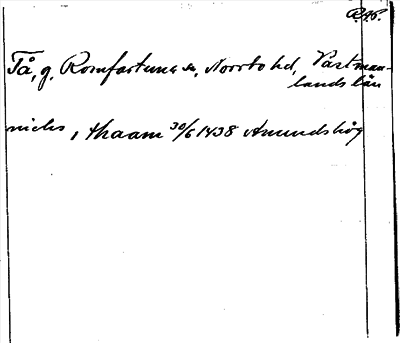 R. 46.
Tå, g. Romfartuna sn, Norrbo hd, Västman-
lands län
nichs, thaam 30/6 1438 Amundshög